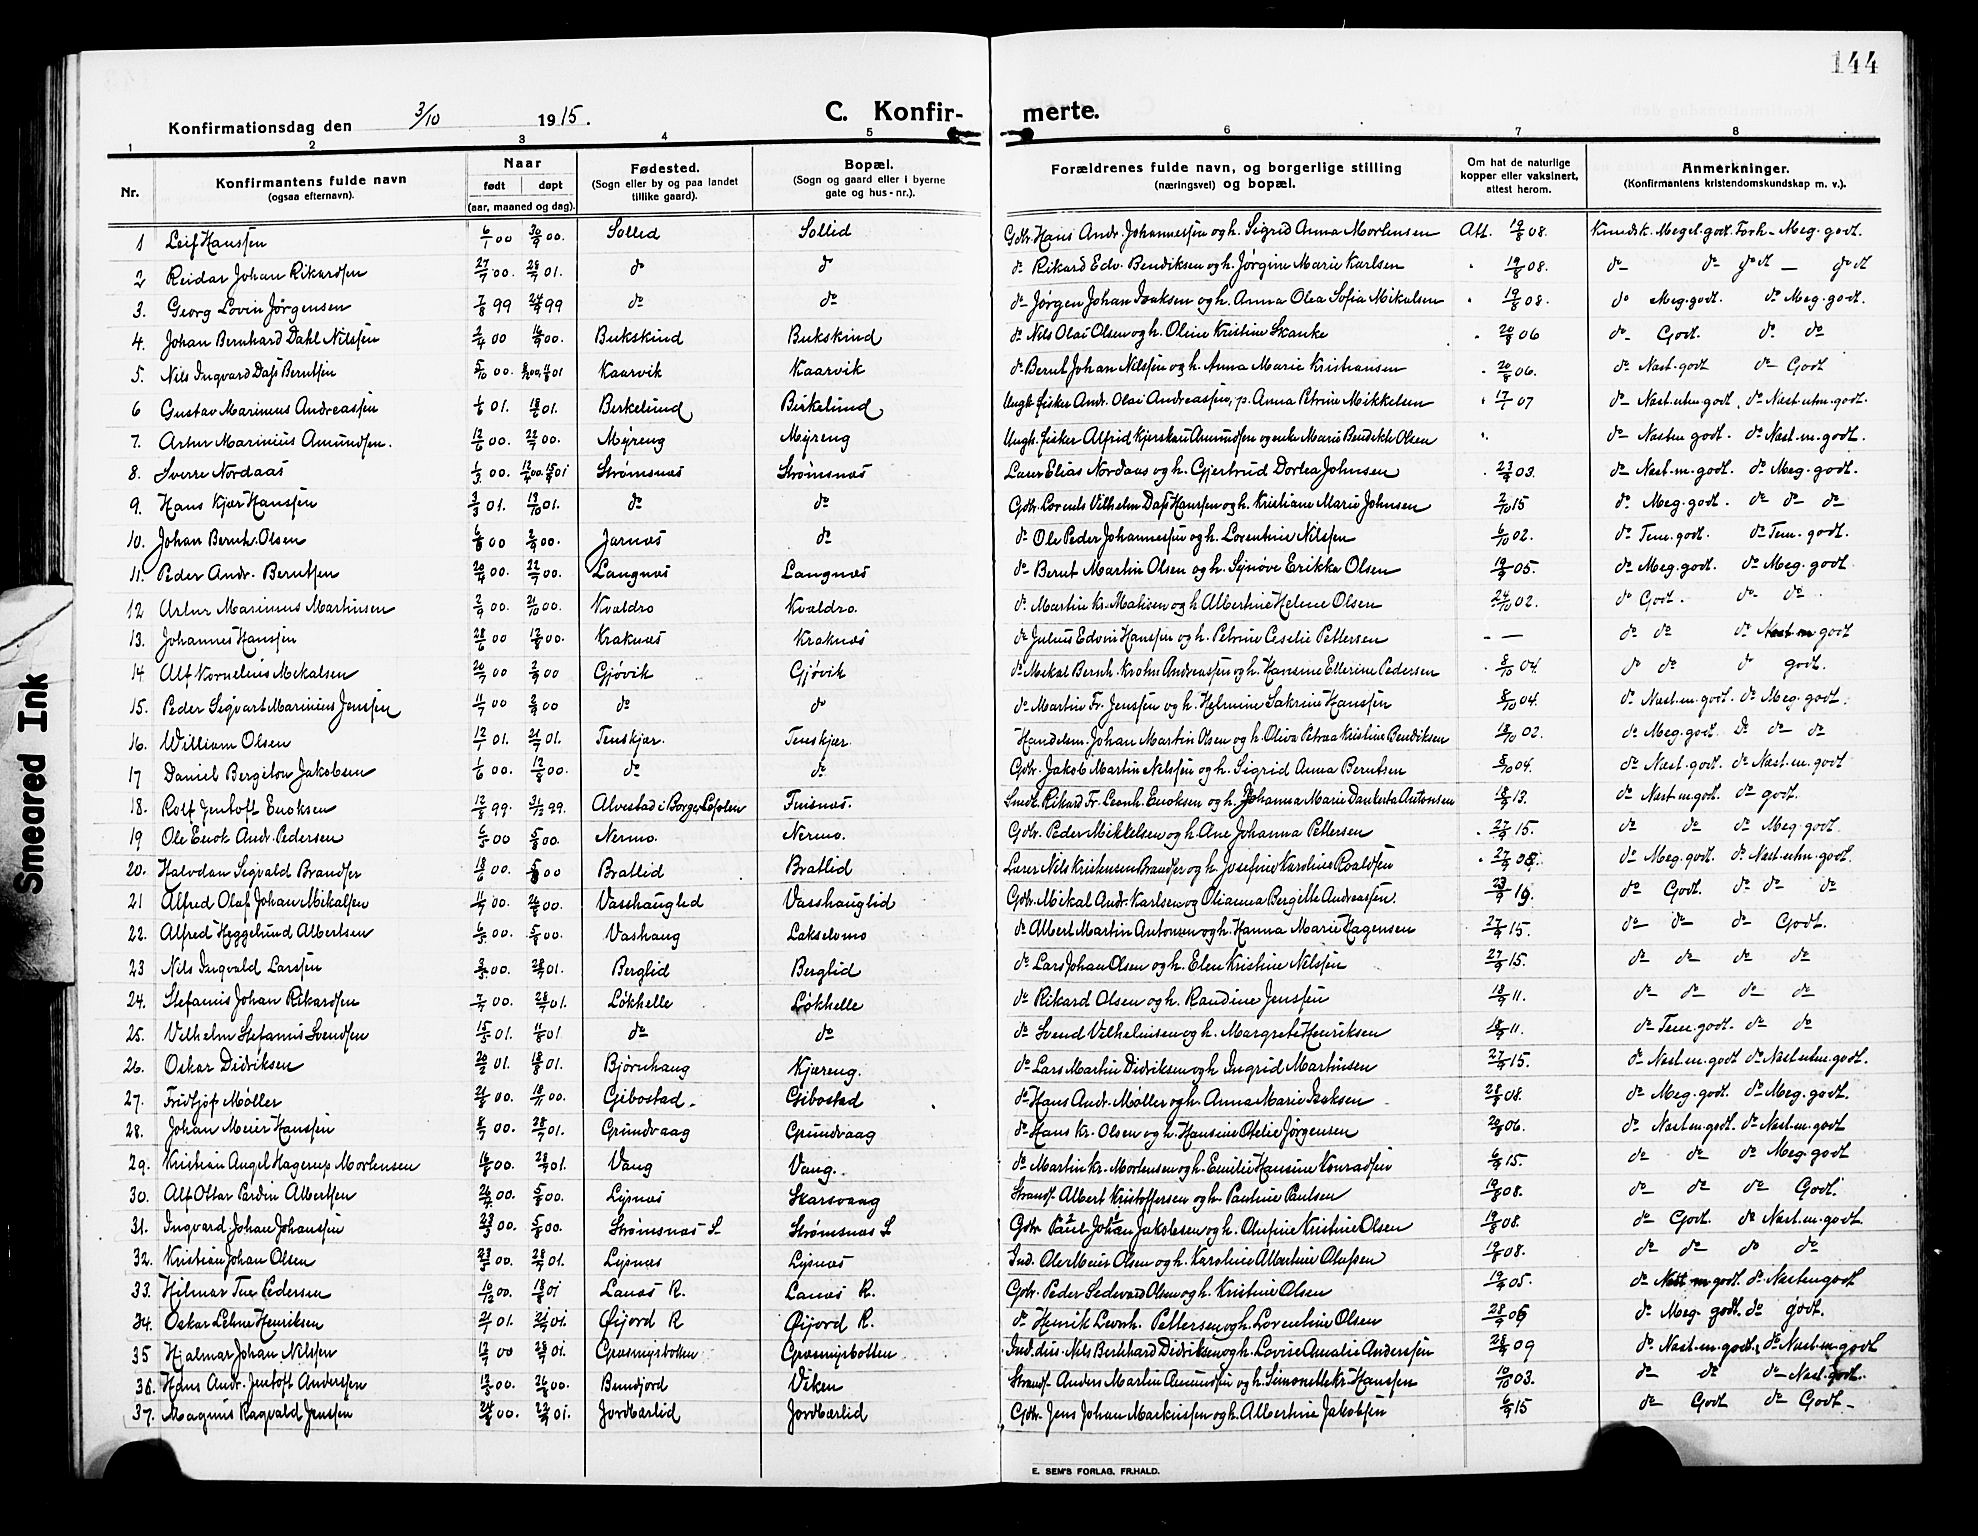 144
Konfirmationsdag den 3/10 1915.
C. Konfir-merte.
1 2 3 4 5 6 7 8
Nr. Konfirmantens fulde navn (ogsaa efternavn). Naar født døpt (aar, maaned og dag). Fødested. (Sogn eller by og paa landet tillike gaard). Bopæl. (Sogn og gaard eller i byerne gate og hus-nr.). Forældrenes fulde navn, og borgerlige stilling (næringsvei) og bopæl. Om hat de naturlige kopper eller vaksinert, attest herom. Anmerkninger. (Konfirmantens kristendomskundskap m. v.).
1 Leif Hanssen 6/1 00 30/9 00. Sollid Sollid Gdbr. Hans Andr. Johannessen og h. Sigrid Anna Mortensen Att. 19/8 08. Kundsk. Meget godt. Forh- Meg. godt.
2 Reidar Johan Rikardsen 27/7 00. 28/7 01. do do do Rikard Edv. Bendiksen og h. Jørgine Marie Karlsen " 19/8 08. do do godt
3. Georg Lovin Jørgensen 7/8 99 24/9 99 do do do Jørgen Johan Isaksen og h. Anna Olea Sofia Mikalsen " 19/8 08. do Meg. godt. do Meg. godt.
4. Johan Bernhard Dahl Nilssen 2/4 00 16/9 00. Bukskind Bukskind do Nils Olai Olsen og h. Oline Kristine Skanke " 20/8 06 do Godt. do do
5. Nils Ingvard Dass Berntsen 5/10 00. Kaarvik Kaarvik do Bernt Johan Nilssen og h. Anna Marie Kristiansen " 20/8 06. do Næst. godt do Godt
6 Gustav Marinius Andreassen 1/6 01. 18/8 01. Birkelund Birkelund Ungk. fisker Andr. Olai Andreassen, p. Anna Petrine Mikkelsen " 17/7 07 do Næst. utm. godt. do Næst. utm. godt.
7. Artur Marinius Amundsen. 12/6 00. 22/7 00. Myreng Myreng Ungk. fisker Alfrid Kjerskau Amundsen og enke Marie Bendikte Olsen ". do Næst m godt. do Næst. m. godt.
8. Sverre Nordaas 1/3 00. Strømsnæs Strømsnæs Lærer Elias Nordaas og h. Gjertrud Dorlea Johnsen 23/9 03. do Næst. m. godt. do Meg. godt.
9. Hans Kjær Hanssen 3/3 01. 13/10 01. do do Gdbr. Lorents Vilhelm Dass Hanssen og h. Kristiane Marie Johnsen 2/10 15 do Meg. godt. do do do
10. Johan Bernh. Olsen 6/8 00 2/9 00. Jarnæs do do Ole Peder Johannessen og h. Lorentine Nilssen 6/10 02. do Tem. godt. do Tem. godt.
11. Peder Andr. Berntsen 20/4 00. 22/7 00. Langnæs Langnæs do Bernt Martin Olsen og h. Synøve Erikka Olsen 19/9 05. do Meg. godt. do Meg. godt
12 Artur Marinius Martinsen 2/9 00. 21/10 00. Kvaldro Kvaldro. do Martin Kr. Matisen og h Albertine Helene Olsen 24/10 02. do Godt. do do
13. Johannes Hanssen 28/6 00 12/8 00. Kraknæs Kraknæs do Julius Edvin Hanssen og h. Petrine Cecelie Pettersen - — do do do Næst m godt
14 Alf Kornelius Mekalsen 20/7 00 2/9 00 Gjøvik Gjøvik do Mekal Bernh. Krohn Andreassen og h. Hansine Ellerine Pedersen 8/10 04. do do do godt.
15. Peder Sigvart Marinius Jenssen 11/7 00 2/9 00 do do do Martin Fr. Jenssen og h. Helmine Sakrine Hanssen 8/10 04. do Næst. m. godt. do Meg. godt.
16. William Olsen 12/1 01. 21/7 01. Tenskjær. Tenskjær. Handelsm. Johan Martin Olsen og h. Oliva Petrea Kristine Bendiksen 18/10 02. do Meg. godt. Do do do
17 Daniel Bergiton Jakobsen 1/6 00. 12/8 00. do do Gdbr. Jakob Martin Nilssen og h. Sigrid Anna Berntsen 8/10 04. do Næst. godt. do Næst. m. godt
18. Rolf Jentoft Enoksen 12/8 99. 31/12 99. Alvestad i Borge, Lofoten Finsnæs. Smed. Rikard Fr. Leonh. Enoksen og h. Johanna Marie Dankerta Antonsen 18/9 13. do Næst. m. godt. do godt.
19 Ole Enok Andr. Pedersen 6/5 00 5/8 00. Nermo. Nermo. Gdbr. Peder Mikkelsen og h. Ane Johanna Pettersen 27/9 15. do do do Meg. godt.
20. Halvdan Sigvald Brandser 18/6 00 5/8 00 Bratlid Bratlid Lærer Nils Kristensen Brandser og h. Josefine Karoline Roaldsen 27/9 08. do Meg. godt. do Næst. utm. godt.
21 Alfred Olaf Johan Mikalsen 11/7 00. 26/8 00. Vasshauglid Vasshauglid Gdbr. Mikal Andr. Karlsen og Olianna Bergitte Andreassen. do Godt. do do do
22. Alfred Heggelund Albertsen 6/5 00. 5/8 00. Vashaug Lakselvmo do Albert Martin Antonsen og h. Hanna Marie Hagensen 27/9 15. do do do Godt.
23 Nils Ingvald Larssen 3/5 00. 28/7 01. Berglid Berglid do Lars Johan Olsen og h. Elen Kristine Nilssen 27/9 15. do do do do
24. Stefanus Johan Rikardsen 7/7 00. 28/7 01. Løkhelle Løkhelle do Rikard Olsen og h. Randine Jenssen 18/9 11. do do do do
25. Vilhelm Stefanus Svendsen 15/5 01. 11/8 01 do do do Svend Vilhelmsen og h. Margrete Henriksen 18/9 11. do Tem. godt. do do
26. Oskar Didriksen 20/2 01. 18/8 01. Bjørnhaug Kjæreng. do Lars Martin Didriksen og h Ingrid Martinsen 27/9 15. do Næst. m. godt do Næst utm. godt.
27. Fridtjof Møller 21/8 00. 18/11 00. Gibostad. Gibostad do Hans Andr. Møller og h. Anna Marie Isaksen 28/8 08. do Meg. godt. do Meg. godt.
28. Johan Meier Hanssen 8/7 00. 28/7 01. Grundvaag Grundvaag do Hans Kr. Olsen og h. Hansine Otelie Jørgensen 20/8 06. do Næst. m. godt. do Næst. m. godt
29. Kristian Angel Hagerup Mortensen 16/8 00. 28/7 01. Vang Vang. do Martin Kr. Mortensen og h. Emilie Hansine Konradsen 6/9 15. do do do Meg. godt
30. Alf Ottar Pardin Albertsen 26/4 00. 5/8 00. Lysnæs Skarsvaag Strands. Albert Kristoffersen og h. Pauline Paulsen 19/8 08. do do do Godt.
31. Ingvard Johan Johanssen 23/3 00. 5/8 00. Strømsnæs S. Strømsnæs S Gdbr. Paul 2 Johan 1 Jakobsen og h. Olufine Kristine Olsen 19/8 08. do Godt. do Næst. m. godt.
32. Kristian Johan Olsen 23/5 00. 28/7 01. Lysnæs Lysnæs Ind. Ole Meier Olsen og h. Karoline Albertine Olufsen 19/8 08. do do do do
33. Hilmar Tue Pedersen 10/12 00. 18/8 01 Lanæs R. Lanæs R. Gdbr. Peder Sedevard Olsen og h. Kristine Olsen 19/9 05. do Næst m godt. do Næst m godt
34. Oskar Lehne Henriksen 21/1 01. 21/7 01. Øijord R Øijord R. do Henrik Leonh. Pettersen og h. Lorentine Olsen 28/8 06 do Meg. godt. do godt.
35 Hjalmar Johan Nilssen 12/7 00 28/7 01. Græsmyrbotten Græsmyrbotten Ind. dis. Nils Bernhard Didriksen og h. Lovise Amalie Anderssen 28/9 09 do Næst. m. godt. do Næst. m. godt
36. Hans Andr. Jentoft Anderssen 12/5 00. 26/8 00. Bundjord Viken Strands. Anders Martin Amundsen og h. Simonette Kr. Hanssen 10/10 03. do do do Næst. godt.
37. Magnus Ragvald Jenssen 24/8 00. 22/9 01. Jordbærlid Jordbærlid Gdbr. Jens Johan Markussen og h. Albertine Jakobsen 6/9 15 do Godt do Godt
E. SEM'S FORLAG, FR.HALD.
Smeared Ink